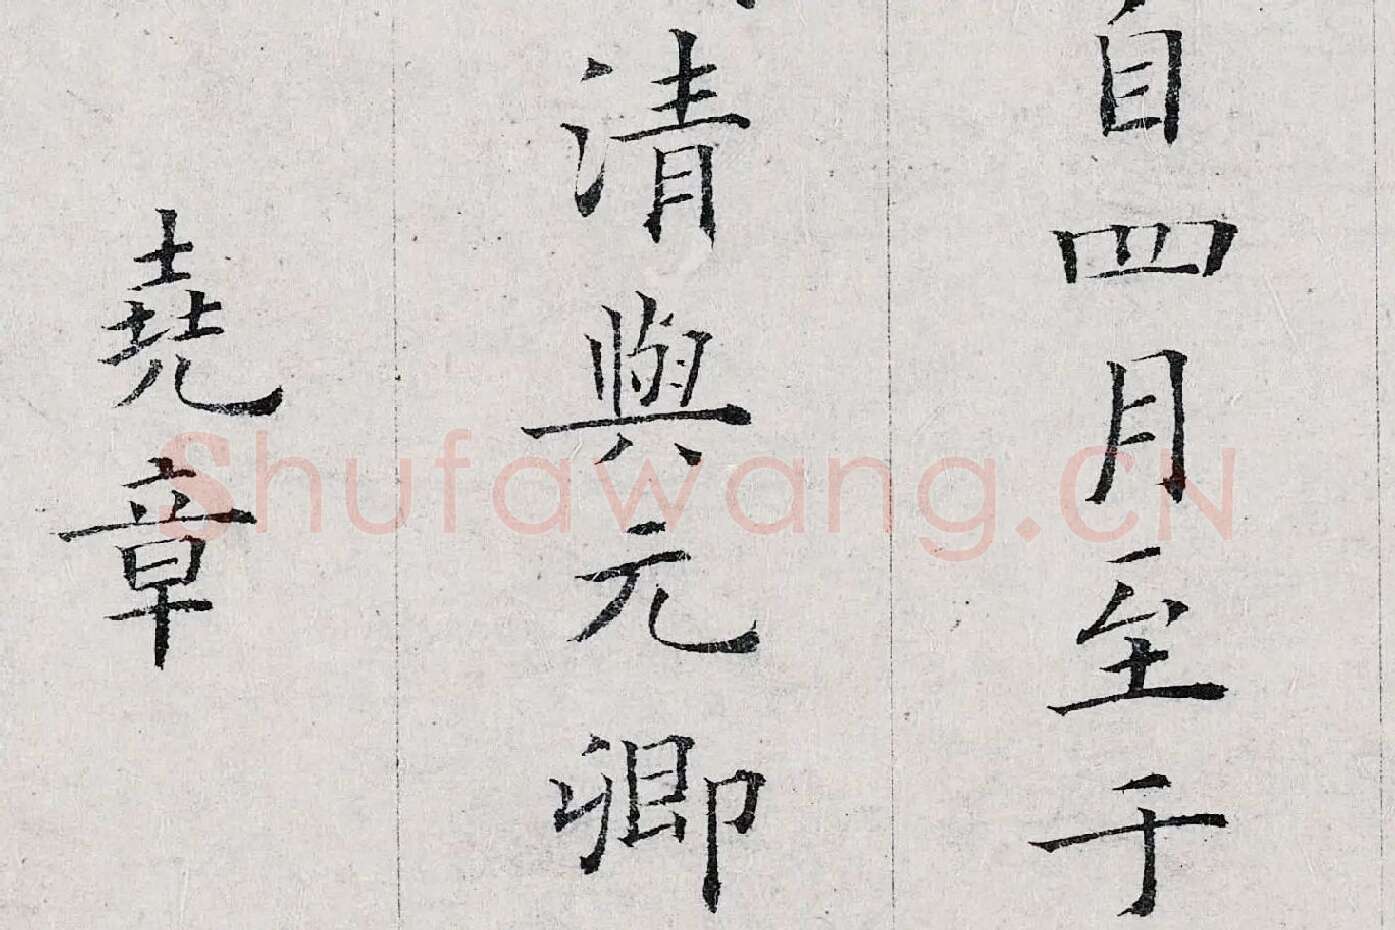 自四月至于
清與元卿
堯章
Shufawang.CN